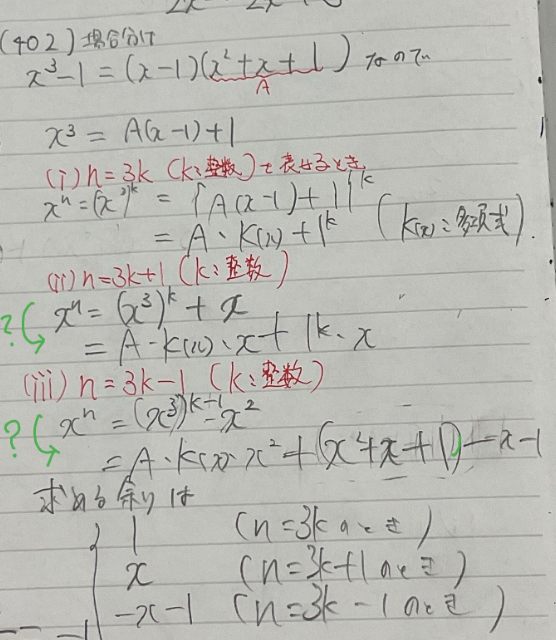 (402) 場合分け
x³-1=(x-1)(x²+x+1) なので
A
x³ = A(x-1)+1
(i) n=3k (k:整数) と表せるとき
xⁿ=(x³)ᵏ = {A(x-1)+1}ᵏ
= A・K(x)+1ᵏ (K(x):多項式).
(ii) n=3k+1 (k:整数)
? xⁿ = (x³)ᵏ + x
= A・K(x)・x+1ᵏ・x
(iii) n=3k-1 (k:整数)
? xⁿ=(x³)ᵏ⁻¹・x²
= A・K(x)・x²+(x²+x+1)-x-1
求める余りは
1 (n=3kのとき)
x (n=3k+1のとき)
-x-1 (n=3k-1のとき)